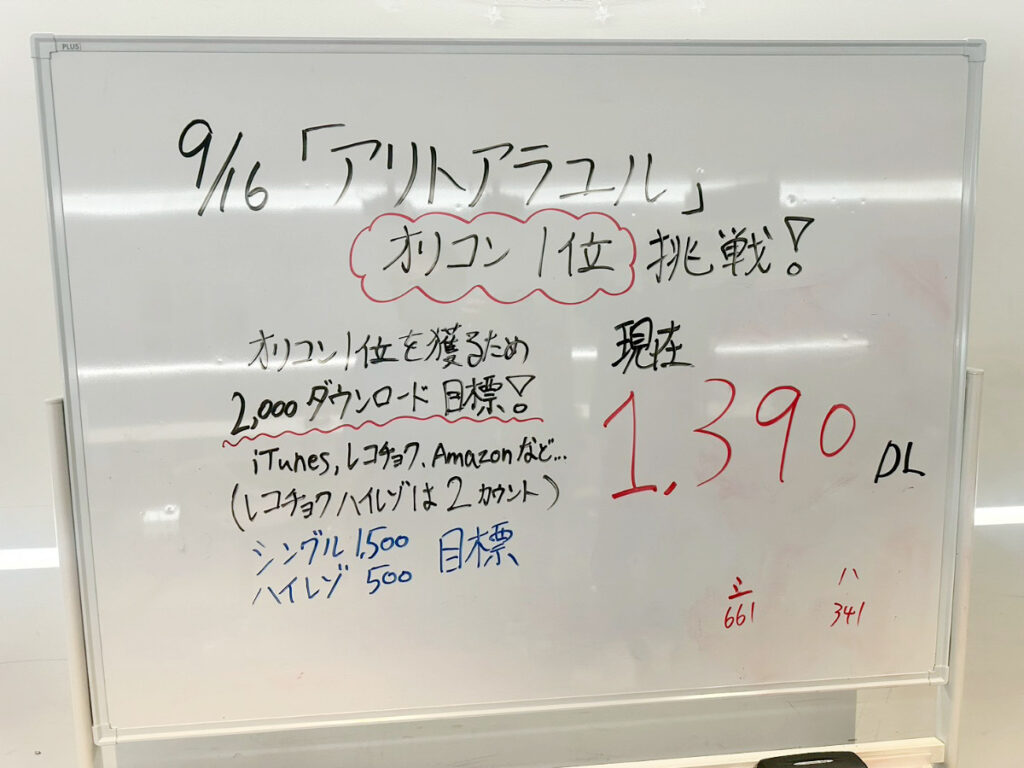 PLUS
9/16「アリトアラユル」
オリコン1位 挑戦!
オリコン1位を獲るため
2,000ダウンロード目標!
iTunes,レコチョク、Amazonなど…
(レコチョクハイレゾは2カウント)
シングル1,500
ハイレゾ 500
目標
現在
1,390 DL
シ ハ
661 341